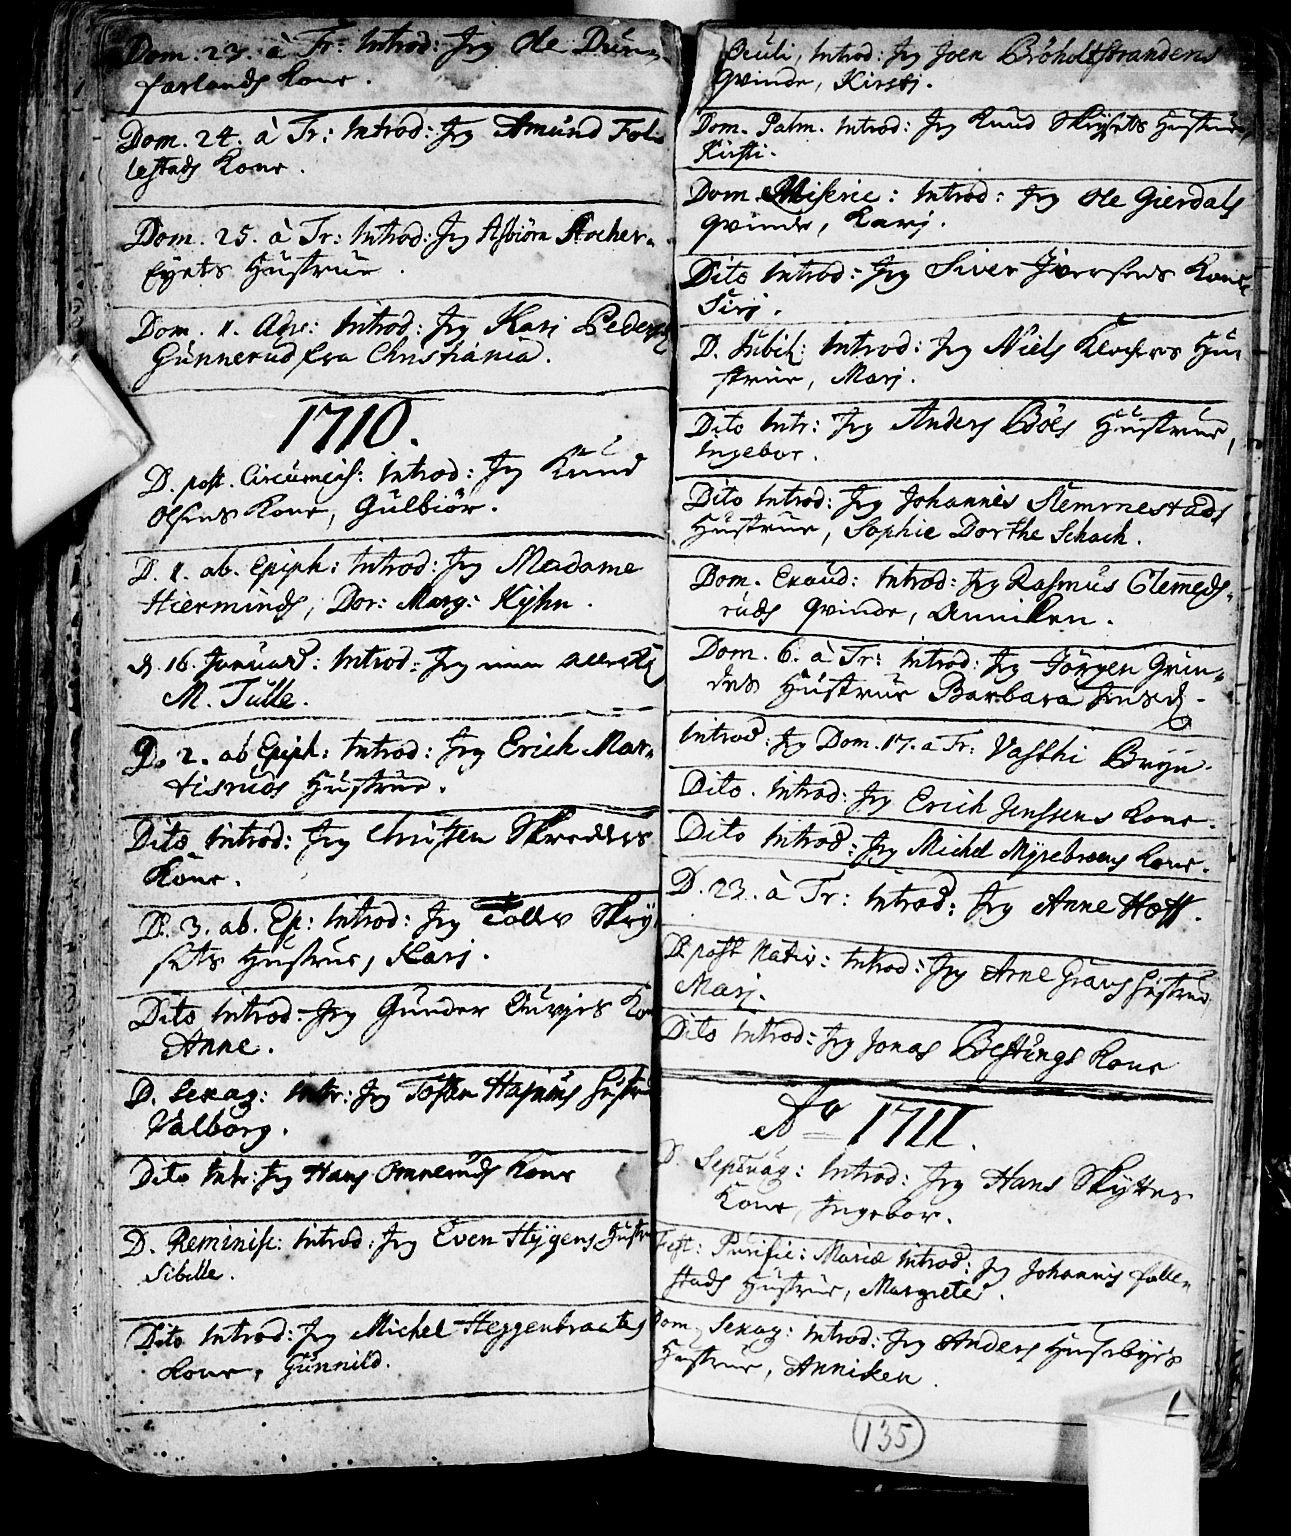 Dom. 23. à Tr: Introd: Jeg Ole Dun-
farlands Kone.
Dom. 24. à Tr: Introd: Jeg Amund Fol-
lestads Kone.
Dom. 25. à Tr: Introd: Jeg Asbiörn
Hustrue.
Dom. 1. Adv: Introd: Jeg Kari Peders
Gunnerud fra Christiania.
1710.
D. post. Circumcis: Introd: Jeg Knud
Olsens Kone, Gulbiör.
D. 1. ab. Epiph: Introd: Jeg Madame
Hierminds, Dor: Marg: Kyhn.
d. 16. Januarij: Introd: Jeg min
M. Tulle.
D. 2. ab Epiph: Introd: Jeg Erich Mar-
tisruds Hustrue.
Dito Introd: Jeg Christen Skreders
Kone.
D. 3. ab. Ep: Introd: Jeg Tollev Skry
sets Hustrue, Karj.
Dito Introd: Jeg Gunder Kone
Anne.
D. Sexag: Intr: Jeg Hustrue
Valborg.
Dito Intr: Jeg Hans Omneruds Kone
D. Reminisc: Introd: Jeg Even Hygens Hustrue
Sibille.
Dito Introd: Jeg Michel Heggenbraates
Kone, Gunnild.
Oculi, Introd: Jeg Joen Bröholtstrandens
Qvinde, Kirsti.
Dom. Palm. Introd: Jeg Knud Skrysets Hustrue
Kirsti.
Dom. Miseric: Introd: Jeg Ole Gierdals
Qvinde, Karj.
Dito Introd: Jeg Siver Iversens Kone
Sirj.
D. Jubil: Introd: Jeg Niels Klochers Hu-
strue, Marj.
Dito Intr: Jeg Anders Böes Hustrue,
Ingebor.
Dito Introd: Jeg Johannes Slemmestads
Hustrue, Sophie Dorthe Schach.
Dom. Exaud: Introd: Jeg Rasmus Clemeds-
ruds Qvinde, Anniken.
Dom. 6. à Tr: Introd: Jeg Jörgen Grün-
des Hustrue Barbara
Introd: Jeg Dom. 17. a Tr: Vasthi Bryn.
Dito. Introd: Jeg Erich Jenssens Kone.
Dito Introd: Jeg Michel Myrebraens Kone.
D. 23. à Tr: Introd: Jeg Anne Hoff.
D. post Nativ: Introd: Jeg Arne Graus Hustrue
Marj.
Dito Introd: Jeg Jonas Bestungs Kone
Ao 1711.
D. Septuag: Introd: Jeg Hans Skytters
Kone, Ingebor.
Fest: Purific: Mariæ Introd: Jeg Johannis Folle-
stads Hustrue, Margrete.
Dom. Sexag: Introd: Jeg Anders Husebyes
Hustrue, Anniken.
135